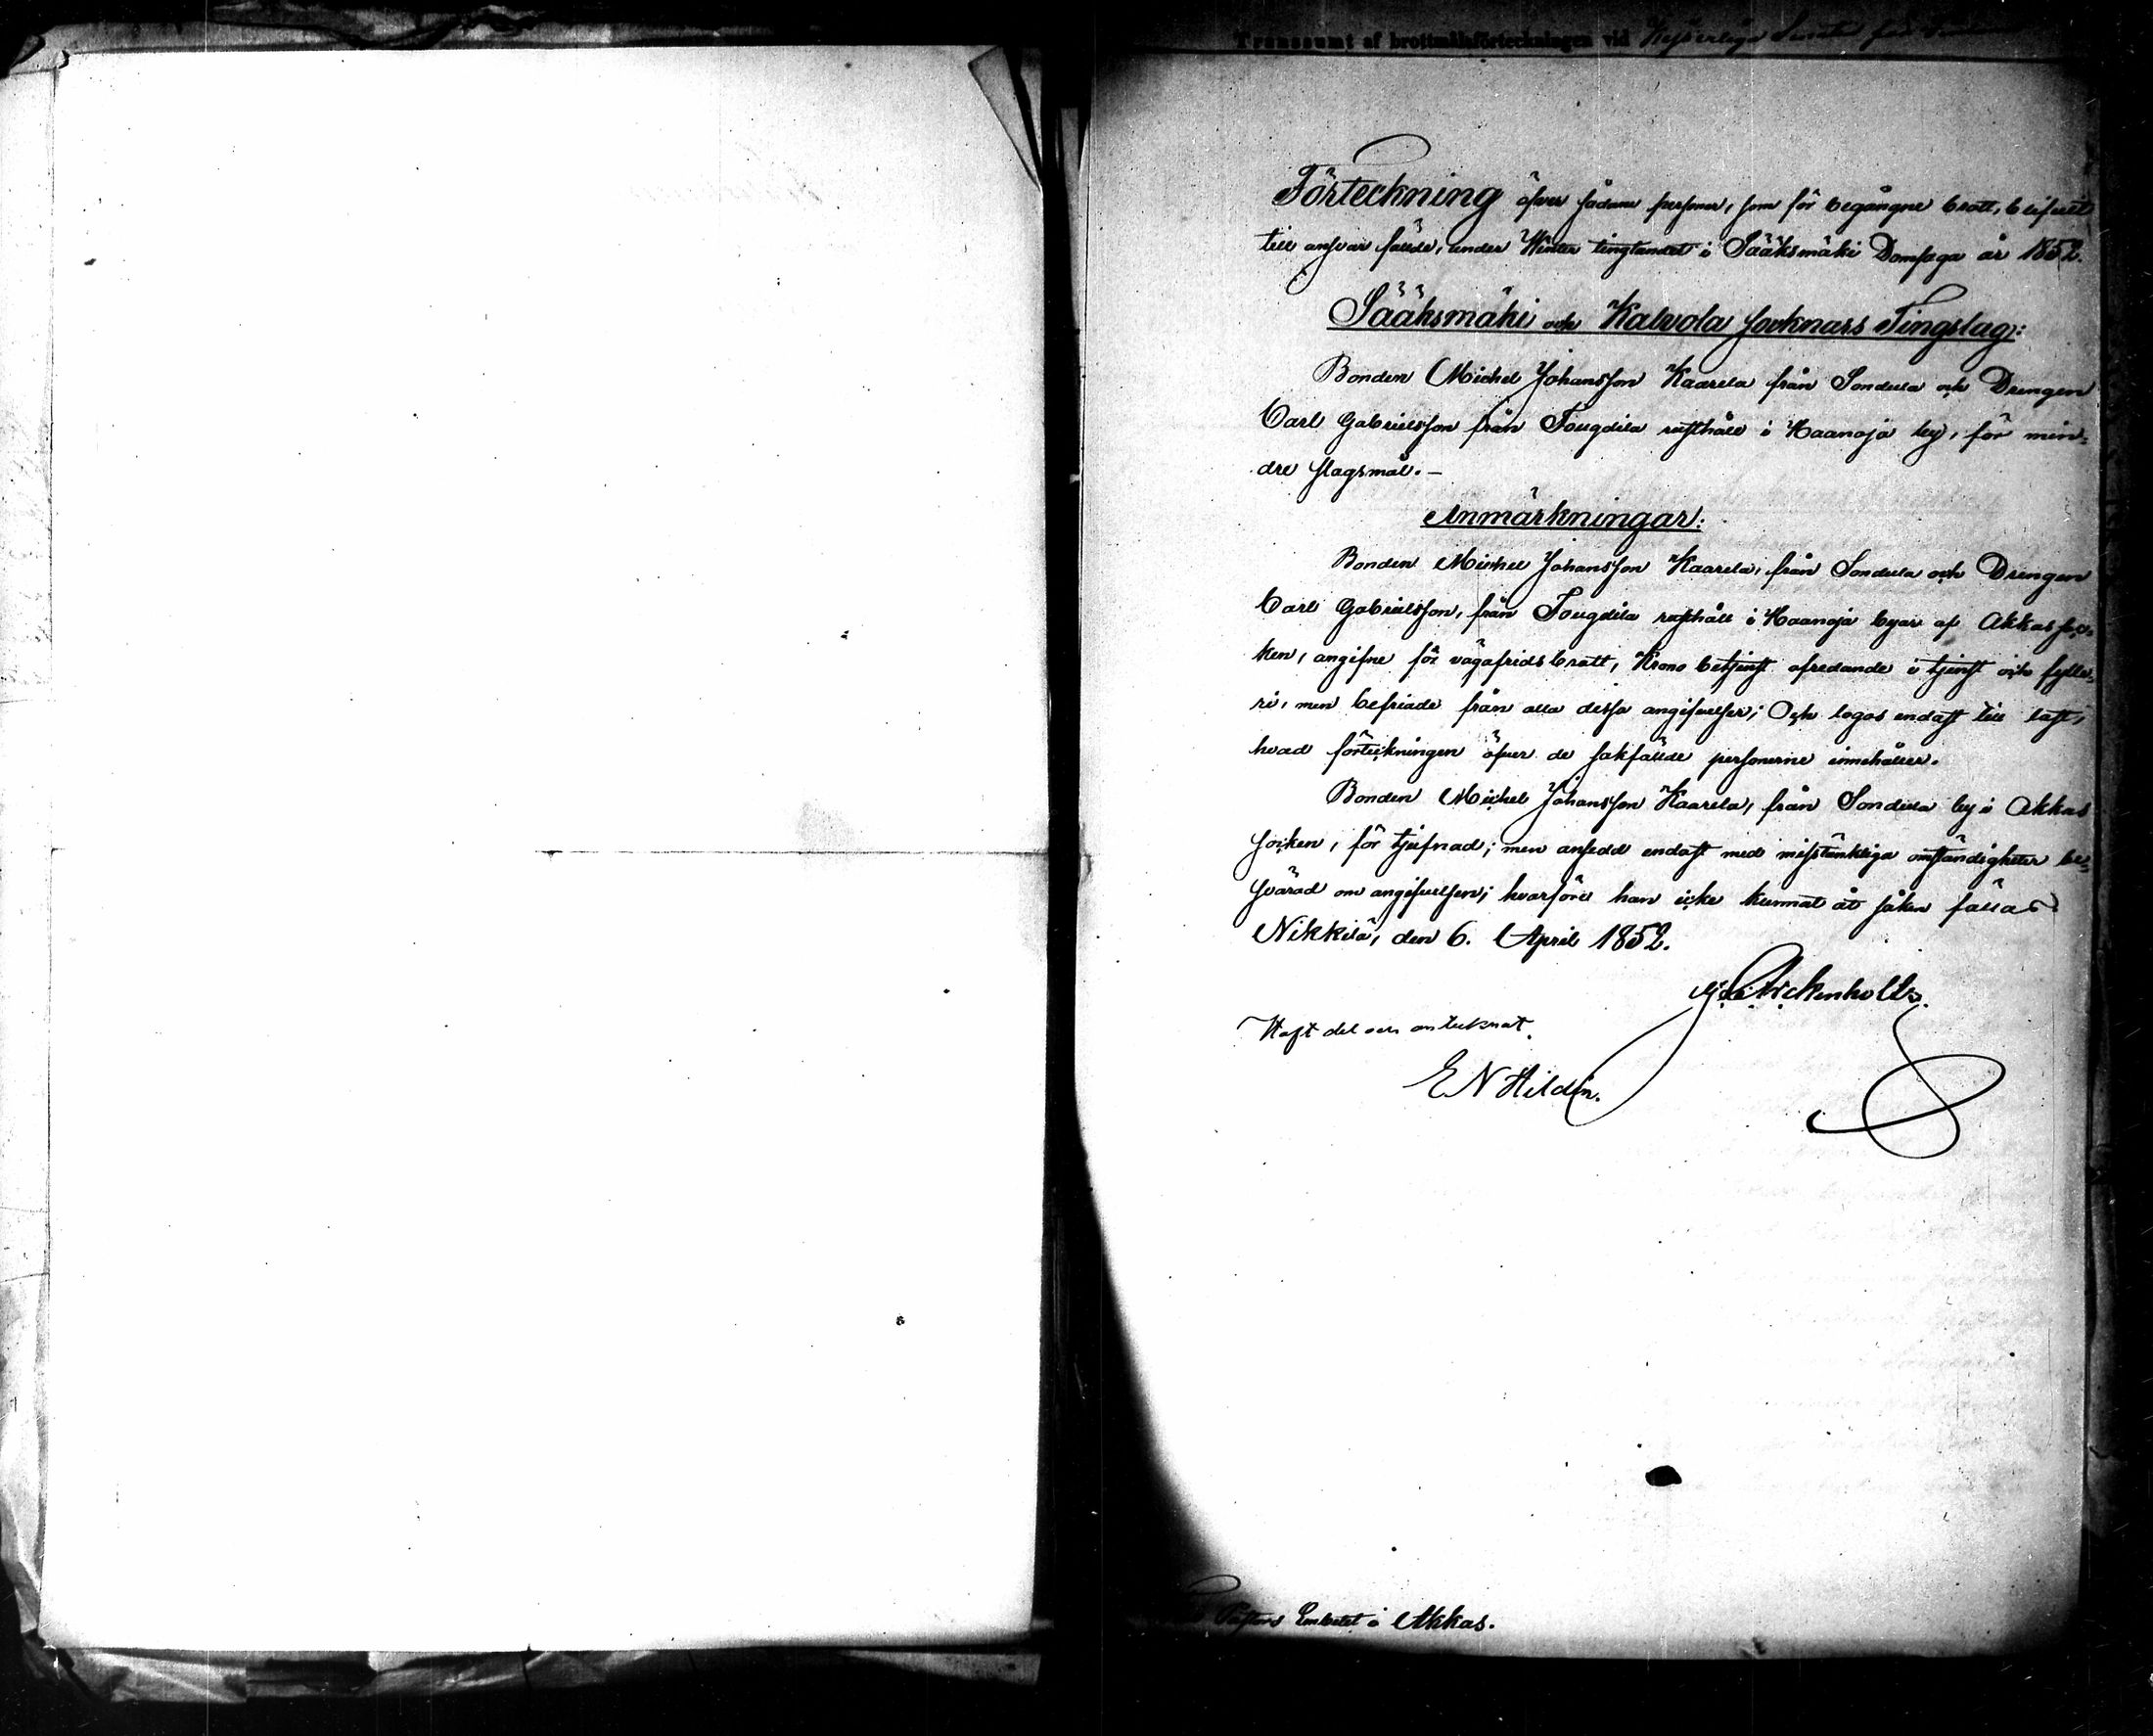 Transsumt af brottmålsförteckningen vid Kejserliga Senaten för
Förteckning öfver sådane personer, som för begångne brott, blifvit
till ansvar fällde, under Winter tingtandet i Sääksmäki Domsaga år 1852.
Sääksmäki och Kalvola socknars Tingslag:
Bonden Michel Johansson Kaarela från Sondula och Drengen
Carl Gabrielsson från Tougdila rusthåll i Haanoja by, för min-
dre slagsmål.-
Anmärkningar:
Bonden Michel Johansson Kaarela, från Sondula och Drengen
Carl Gabrielsson, från Tougdila rusthåll i Haanoja byar af Akkas soc-
ken, angifne för vägafridsbrott, Krono betjenst ofredande i tjenst och fylle-
ri, men befriade från alla dessa angifvelser; Och togos endast till last,
hvad förteckningen öfver de sakfällde personerne innehåller.
Bonden Michel Johansson Kaarela, från Sondula by i Akkas
socken, för tjufnad; men ansedd endast med misstänkliga omständigheter be-
svärad om angifvelsen; hvarföre han icke kunnat åt saken fällas
Nikkilä, den 6. April 1852.
Arckenholtz.
Haft del och antecknat.
E N Hildén.
Pastors Embetet i Akkas.